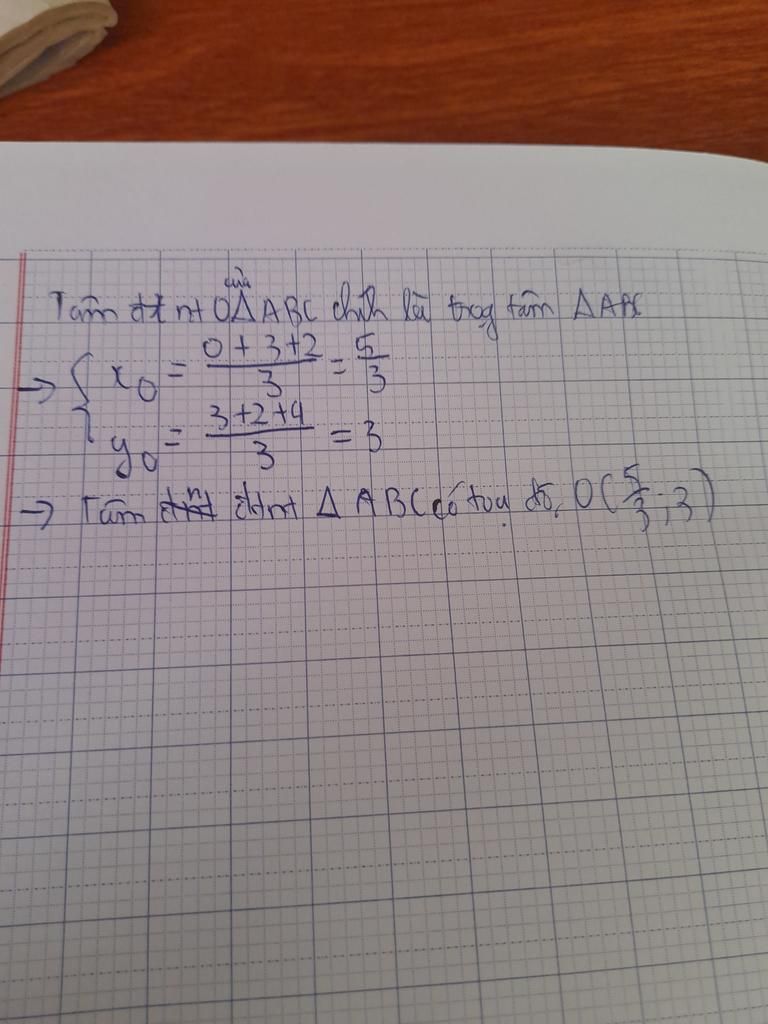 Tâm đtnt O của Δ ABC chíh là trọg tâm Δ ABC
→ { x₀ = (0 + 3 + 2)/3 = 5/3
y₀ = (3 + 2 + 4)/3 = 3
→ Tâm đtnt Δ ABC có toạ độ O(5/3; 3)